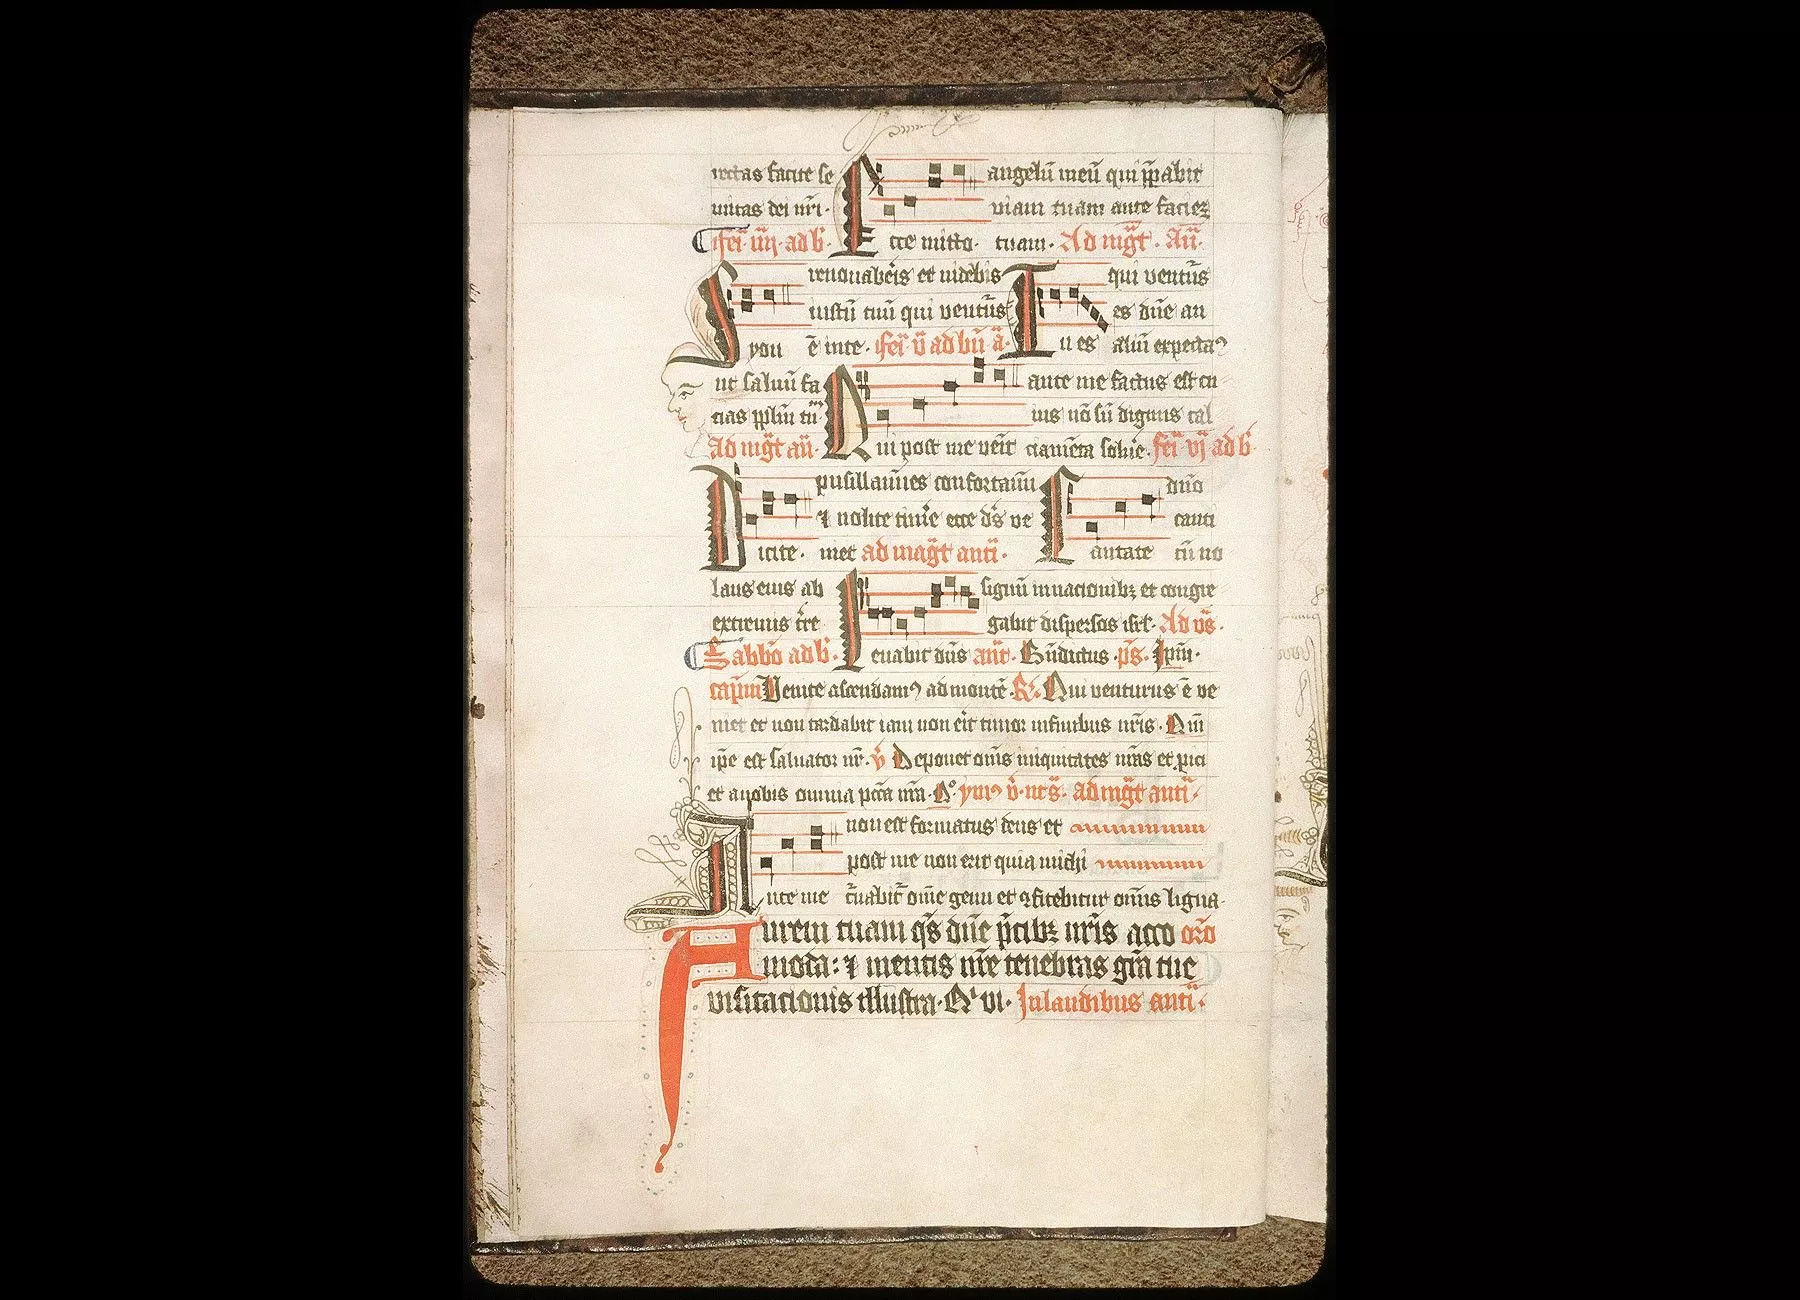 rectas facite se angelū meū qui p̄pabit
mitas dei nr̄i · viam tuam ante faciē
fei͛ iiij · ad b · Ecce mitto · tuam · Ad mḡt · Aū ·
renouab̄is et uidebis qui ventūs
iustū tuū qui ventūs es dn̄e an
Syon ē in te · fei͛ v ad bn̄ ā · Tu es aliū expectaꝰ
ut saluū fa ante me factus est cu
cias pplm̄ tuū ius nō sū dignus cal
Ad mḡt aū · Qui post me veīt ciam̄ta solue · fei͛ vj ad b
pusillanīes confortamī duo
⁊ nolite tim̄e ecce dn̄s ve canti
Dicite · niet ad maḡt anti · Cantate cū no
laus eius ab signū in nacionibꝫ et congre
extremis tr̄re gabit dispersos isrl · Ad vs̄ ·
Sabbo ad b · Leuabit dn̄s an̄t · Bn̄dictus · ps̄ · Ipm̄ ·
capm̄ Venite ascendamꝰ ad montē · R̄ · Qui venturus ē ve
niet et non tardabit iam non er̄it timor in finibus nr̄is · Qm̄
ip̄e est saluator nr̄ · v̄ Deponet om̄s iniquitates nr̄as et p̄ici
et a nobis omnia pccā nr̄a · Q° ymꝰ v̄ · nt̄s · ad mḡt anti ·
non est formatus deus et
post me non erit quia michi
Ante me c̄uabit͛ om̄e genu et ꝯfitebitur om̄is ligna ·
Aurem tuam qs̄ dn̄e p̄cibꝫ nr̄is acco or̄o
moda : ⁊ mentis nr̄e tenebras gr̄a tue
visitacionis illustra · Qⁱ vi · In laudibus anti ·